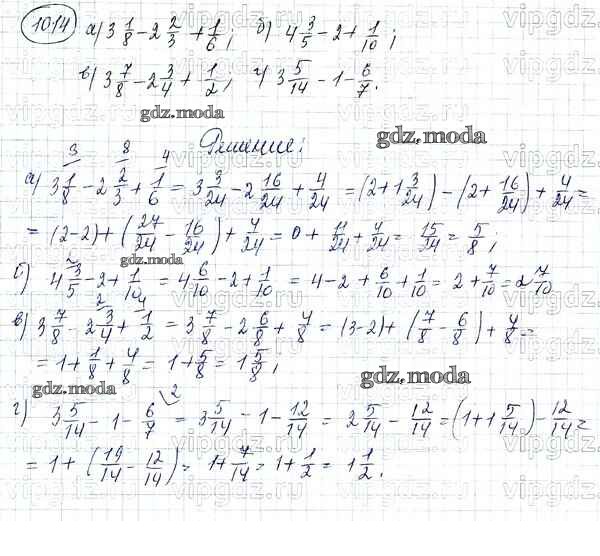 1014 а) 3 1/8 - 2 2/3 + 1/6; б) 4 3/5 - 2 + 1/10;
в) 3 7/8 - 2 3/4 + 1/2; г) 3 5/14 - 1 - 6/7.
gdz.moda
gdz.moda
Решение:
3 8 4
а) 3 1/8 - 2 2/3 + 1/6 = 3 3/24 - 2 16/24 + 4/24 = (2 + 1 3/24) - (2 + 16/24) + 4/24 =
= (2-2) + (27/24 - 16/24) + 4/24 = 0 + 11/24 + 4/24 = 15/24 = 5/8;
gdz.moda
2
б) 4 3/5 - 2 + 1/10 = 4 6/10 - 2 + 1/10 = 4 - 2 + 6/10 + 1/10 = 2 + 7/10 = 2 7/10
2 4
в) 3 7/8 - 2 3/4 + 1/2 = 3 7/8 - 2 6/8 + 4/8 = (3-2) + (7/8 - 6/8) + 4/8 =
= 1 + 1/8 + 4/8 = 1 + 5/8 = 1 5/8;
gdz.moda
gdz.moda
2
г) 3 5/14 - 1 - 6/7 = 3 5/14 - 1 - 12/14 = 2 5/14 - 12/14 = (1 + 1 5/14) - 12/14 =
= 1 + (19/14 - 12/14) = 1 + 7/14 = 1 + 1/2 = 1 1/2.
vipgdz.ru